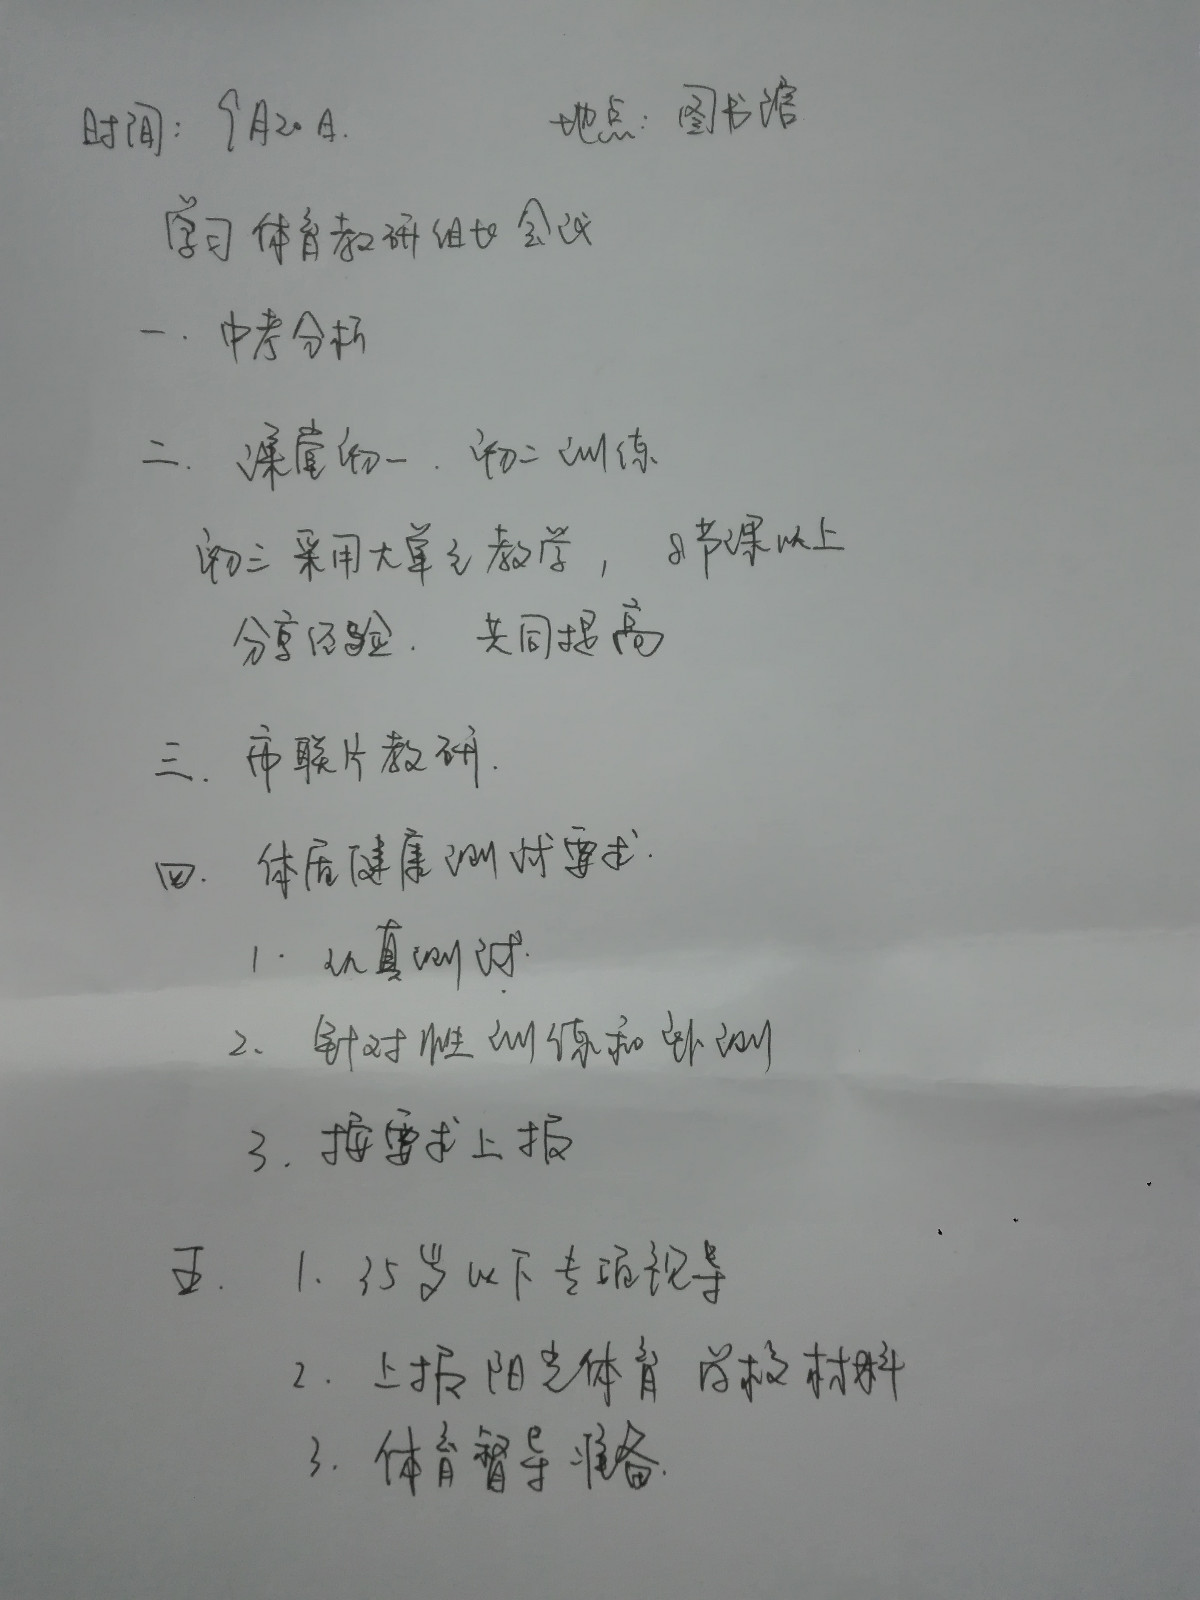 时间：9月20日.　　地点：图书馆
学习体育教研组长会议
一．中考分析
二．课堂初一．初二训练
初三采用大单元教学，8节课以上
分享经验．共同提高
三．市联片教研．
四．体质健康测试要求．
1．认真测试．
2、针对性训练和补测
3．按要求上报
五．1．35岁以下专项视导
2．上报阳光体育学校材料
3．体育督导准备．